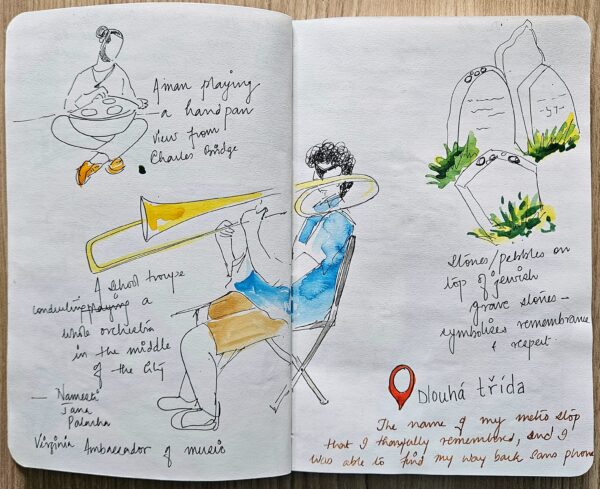 A man playing
a handpan
View from
Charles Bridge
A school troupe
conducting playing a
whole orchestra
in the middle
of the City
— Namesti
Jana
Palacha
Virginia Ambassador of music
Stones/pebbles on
top of jewish
grave stones –
symbolises remembrance
& respect.
Dlouhá třída
The name of my metro stop
that I thankfully remembered, and I
was able to find my way back sans phone